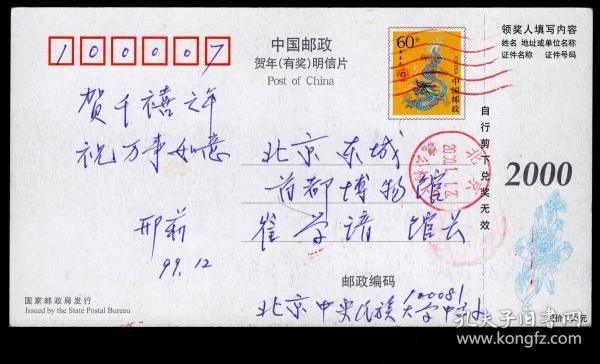 100007
中国邮政
贺年(有奖)明信片
Post of China
60分
CHINA
中国邮政
领奖人填写内容
姓名 地址或单位名称
证件名称 证件号码
自行剪下兑奖无效
2000
賀千禧之年
祝万事如意
邢莉
99.12
北京 东城
首都博物馆
崔学谙 馆长
北京
邮政编码
100081
北京中央民族大学中文
国家邮政局发行
Issued by the State Postal Bureau
孔夫子旧书网
www.kongfz.com